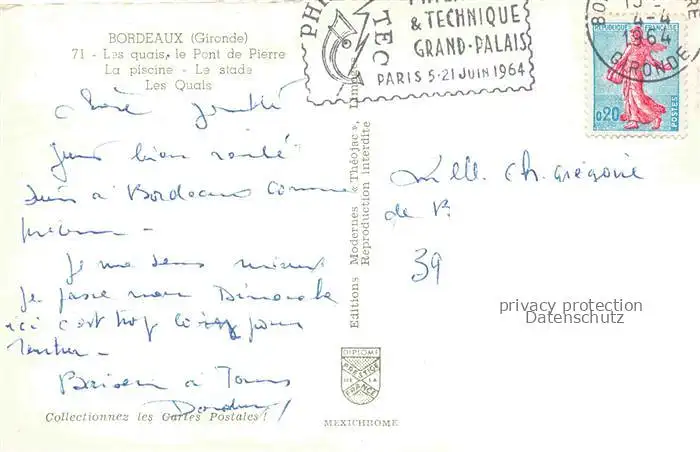 BORDEAUX (Gironde)
71 - Les quais, le Pont de Pierre
La piscine - Le stade
Les Quais
PHI
TEC
& TECHNIQUE
GRAND-PALAIS
PARIS 5-21 JUIN 1964
BO
4-4
1964
GIRONDE
0,20
POSTES
bien
suis à Bordeaux comme
prévu -
Je me sens mieux
Je passe mon Dimanche
ici c'est trop loin pour
rentrer -
Baisers à Tous
Editions Modernes « Théojac », Limoges
Reproduction interdite
Mlle. Ch. Grégoire
de B
39
privacy protection
Datenschutz
DIPLOME
PRESTIGE
DE LA
FRANCE
MEXICHROME
Collectionnez les Cartes Postales !